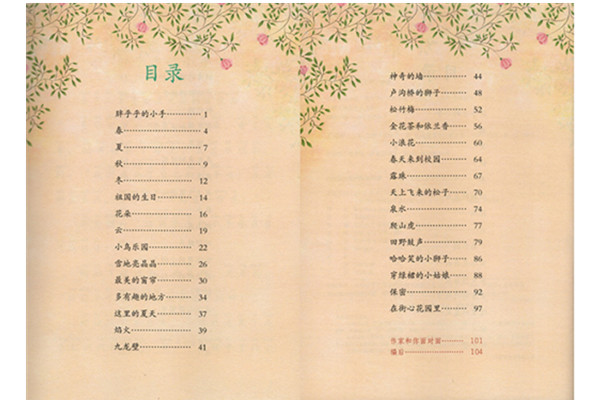 目录
胖乎乎的小手………… 1
春………… 4
夏………… 7
秋………… 9
冬………… 12
祖国的生日………… 14
花朵………… 16
云………… 19
小鸟乐园………… 22
雪地亮晶晶………… 26
最美的窗帘………… 30
多有趣的地方………… 34
这里的夏天………… 37
焰火………… 39
九龙壁………… 41
神奇的墙………… 44
卢沟桥的狮子………… 48
松竹梅………… 52
金花茶和依兰香………… 56
小浪花………… 60
春天来到校园………… 64
露珠………… 67
天上飞来的松子………… 70
泉水………… 74
爬山虎………… 77
田野鼓声………… 79
哈哈笑的小狮子………… 86
穿绿裙的小姑娘………… 88
保密………… 92
在街心花园里………… 97
作家和你面对面………… 101
编后………… 104